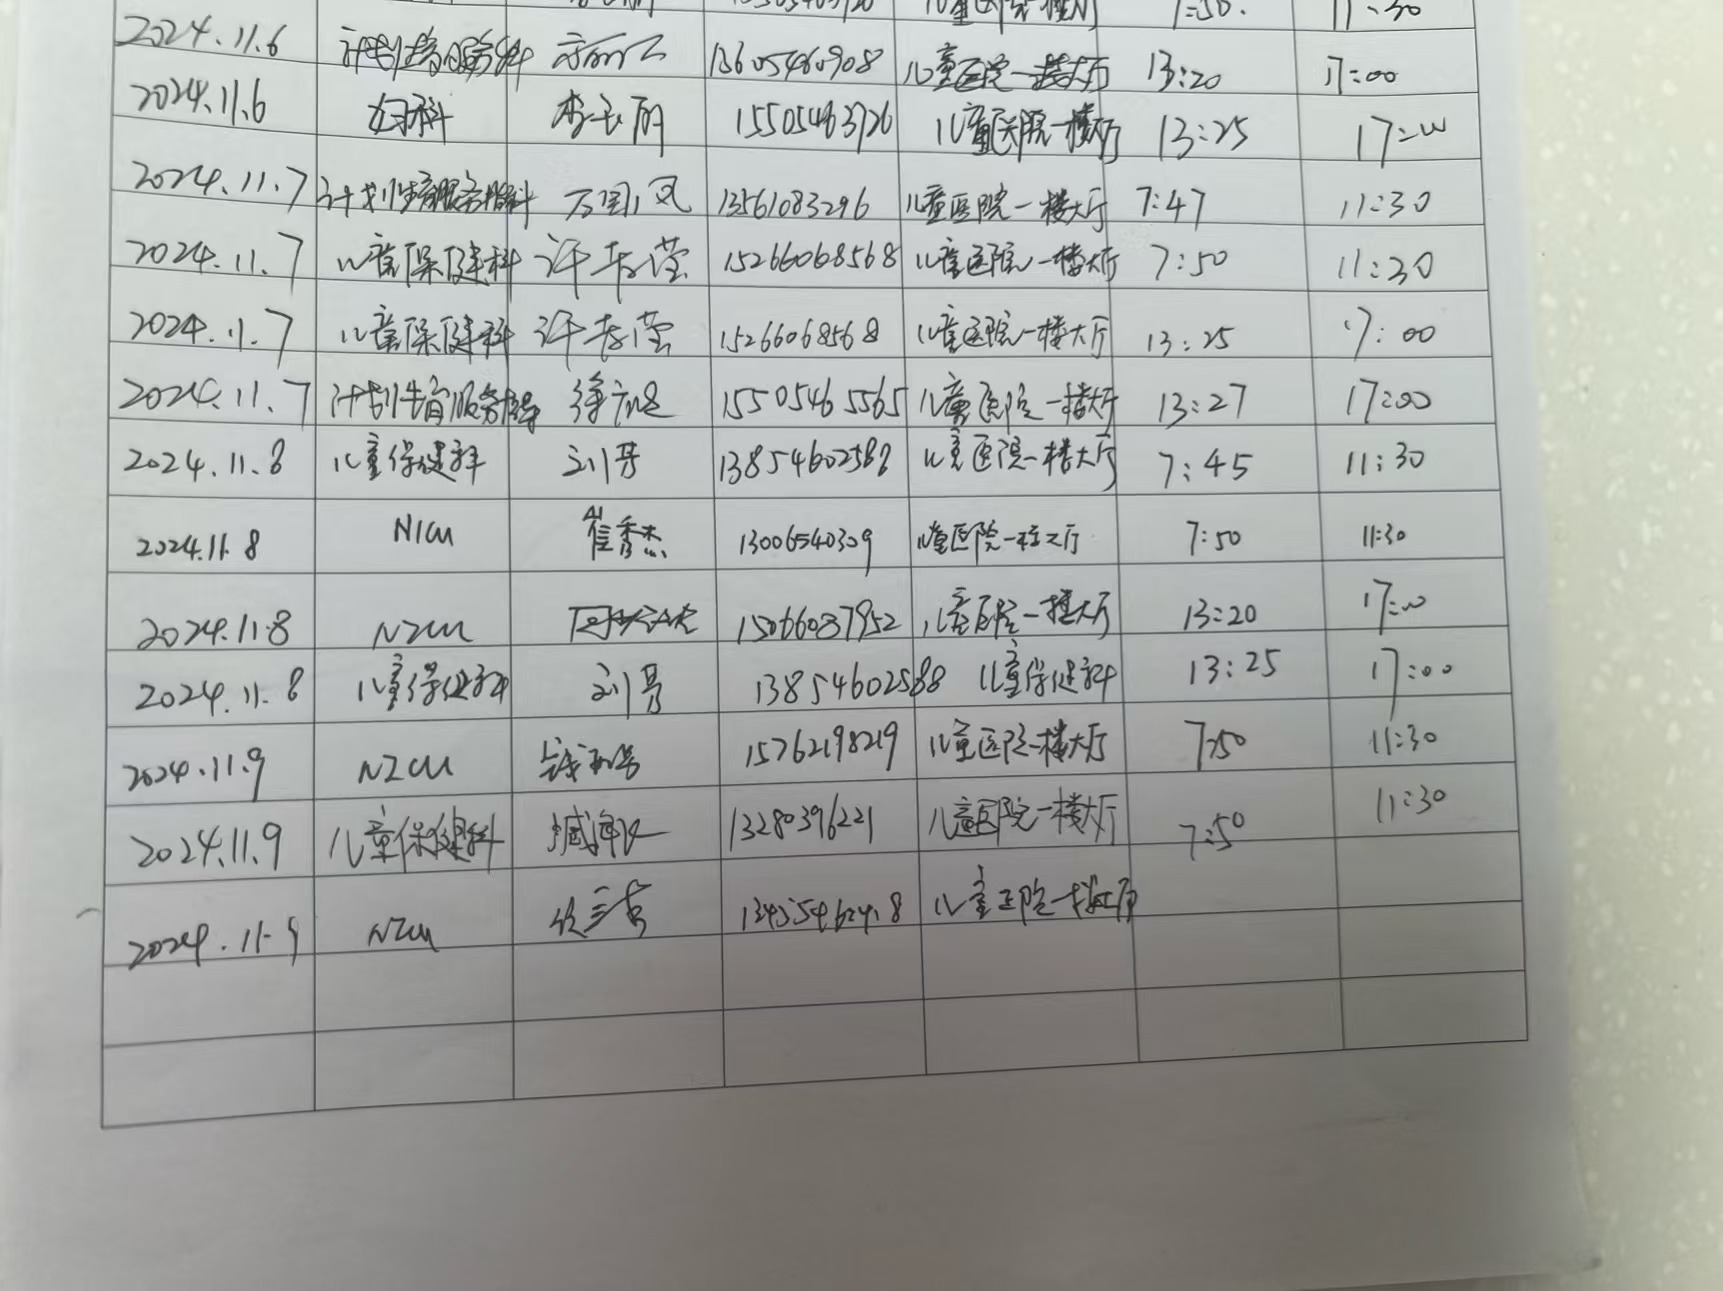 7:50. 11:30
2024.11.6 计划生育服务科 13605460908 儿童医院一楼大厅 13:20 17:00
2024.11.6 妇科 15505463726 儿童医院一楼大厅 13:25 17:00
2024.11.7 计划生育服务科 万国凤 13561083296 儿童医院一楼大厅 7:47 11:30
2024.11.7 儿童保健科 许春莹 15266068568 儿童医院一楼大厅 7:50 11:30
2024.11.7 儿童保健科 许春莹 15266068568 儿童医院一楼大厅 13:25 17:00
2024.11.7 计划生育服务 15505465565 儿童医院一楼大厅 13:27 17:00
2024.11.8 儿童保健科 刘丹 13854602588 儿童医院一楼大厅 7:45 11:30
2024.11.8 NICU 崔秀杰 13006540309 儿童医院一楼大厅 7:50 11:30
2024.11.8 NICU 15066037952 儿童医院一楼大厅 13:20 17:00
2024.11.8 儿童保健科 刘丹 13854602588 儿童保健科 13:25 17:00
2024.11.9 NICU 15762198219 儿童医院一楼大厅 7:50 11:30
2024.11.9 儿童保健科 13280396221 儿童医院一楼大厅 7:50 11:30
2024.11.9 NICU 儿童医院一楼大厅